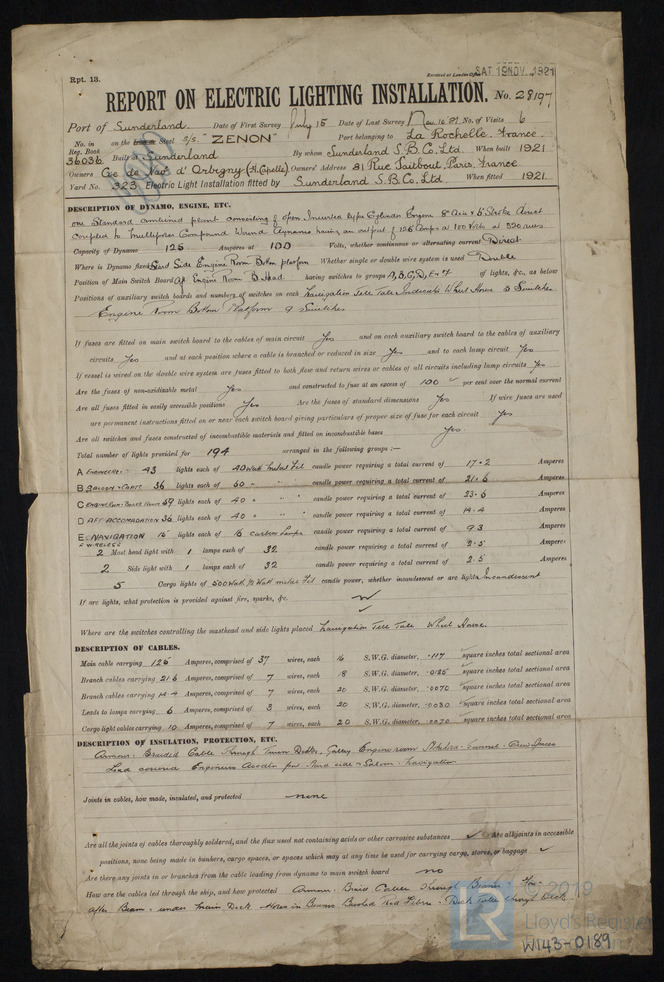 Rpt. 13.
Received at London Office SAT. 19 NOV. 1921
REPORT ON ELECTRIC LIGHTING INSTALLATION. No. 28197
Port of Sunderland. Date of First Survey July 15 Date of Last Survey Nov. 16 No. of Visits 6
No. in Reg. Book 36036 on the Steel S/S. "ZENON" Port belonging to La Rochelle. France.
Built at Sunderland By whom Sunderland S.B. Co. Ltd. When built 1921
Owners Cie de Nav d' Orbigny (H. Capelle) Owners' Address 31 Rue Taitbout, Paris, France
Yard No. 323. Electric Light Installation fitted by Sunderland S.B. Co. Ltd When fitted 1921.
DESCRIPTION OF DYNAMO, ENGINE, ETC.
one Standard combined plant consisting of open Inverted type Cylinder Engine 8" dia x 5" Stroke direct
coupled to Multipolar Compound Wound Dynamo having an output of 125 Amps at 100 Volts at 520 revs.
Capacity of Dynamo 125 Amperes at 100 Volts, whether continuous or alternating current Direct
Where is Dynamo fixed Side Engine Room Bottom platform Whether single or double wire system is used Double
Position of Main Switch Board Aft Engine Room B. Head having switches to groups A, B, C, D, E & F of lights, &c., as below
Positions of auxiliary switch boards and numbers of switches on each Navigation Tell Tale Indicator Wheel House 5 Switches
Engine Room Bottom Platform 9 Switches
If fuses are fitted on main switch board to the cables of main circuit Yes and on each auxiliary switch board to the cables of auxiliary
circuits Yes and at each position where a cable is branched or reduced in size Yes and to each lamp circuit Yes
If vessel is wired on the double wire system are fuses fitted to both flow and return wires or cables of all circuits including lamp circuits Yes
Are the fuses of non-oxidizable metal Yes and constructed to fuse at an excess of 100 per cent over the normal current
Are all fuses fitted in easily accessible positions Yes Are the fuses of standard dimensions Yes If wire fuses are used
are permanent instructions fitted on or near each switch board giving particulars of proper size of fuse for each circuit Yes
Are all switches and fuses constructed of incombustible materials and fitted on incombustible bases Yes.
Total number of lights provided for 194 arranged in the following groups :—
A ENGINEERS. 43 lights each of 40 Watt Metal Fil candle power requiring a total current of 17.2 Amperes
B SALOON & CAPT. 36 lights each of 60 " " " candle power requiring a total current of 21.6 Amperes
C ENGINE ROOM & BOILER HOUSE 59 lights each of 40 " " " candle power requiring a total current of 23.6 Amperes
D AFT ACCOMODATION 36 lights each of 40 " " " candle power requiring a total current of 14.4 Amperes
E NAVIGATION 15 lights each of 16 carbon Lamps candle power requiring a total current of 9.3 Amperes
F WIRELESS
2 Mast head light with 1 lamps each of 32 candle power requiring a total current of 2.5 Amperes
2 Side light with 1 lamps each of 32 candle power requiring a total current of 2.5 Amperes
5 Cargo lights of 500 Watt ½ Watt metal Fil candle power, whether incandescent or arc lights Incandescent
If arc lights, what protection is provided against fire, sparks, &c.
Where are the switches controlling the masthead and side lights placed Navigation Tell Tale Wheel House.
DESCRIPTION OF CABLES.
Main cable carrying 125 Amperes, comprised of 37 wires, each 16 S.W.G. diameter, .117 square inches total sectional area
Branch cables carrying 21.6 Amperes, comprised of 7 wires, each 18 S.W.G. diameter, .0125 square inches total sectional area
Branch cables carrying 14.4 Amperes, comprised of 7 wires, each 20 S.W.G. diameter, .0070 square inches total sectional area
Leads to lamps carrying 6 Amperes, comprised of 3 wires, each 20 S.W.G. diameter, .0030 square inches total sectional area
Cargo light cables carrying 10 Amperes, comprised of 7 wires, each 20 S.W.G. diameter, .0070 square inches total sectional area
DESCRIPTION OF INSULATION, PROTECTION, ETC.
Armour. Braided Cable Through Galley Engine room Stokehold Tunnel Crew Spaces
Lead covered Engineers Accodn for Mid side & Saloon. Navigation
Joints in cables, how made, insulated, and protected none
Are all the joints of cables thoroughly soldered, and the flux used not containing acids or other corrosive substances Are all joints in accessible
positions, none being made in bunkers, cargo spaces, or spaces which may at any time be used for carrying cargo, stores, or baggage
Are there any joints in or branches from the cable leading from dynamo to main switch board no
How are the cables led through the ship, and how protected Armour. Braid Cables Through Beams
after Beam. under Main Deck Holes in Beams Bushed Red Fibre. Deck Tubes through Deck
© 2019
LR
Lloyd's Register
W143-0189